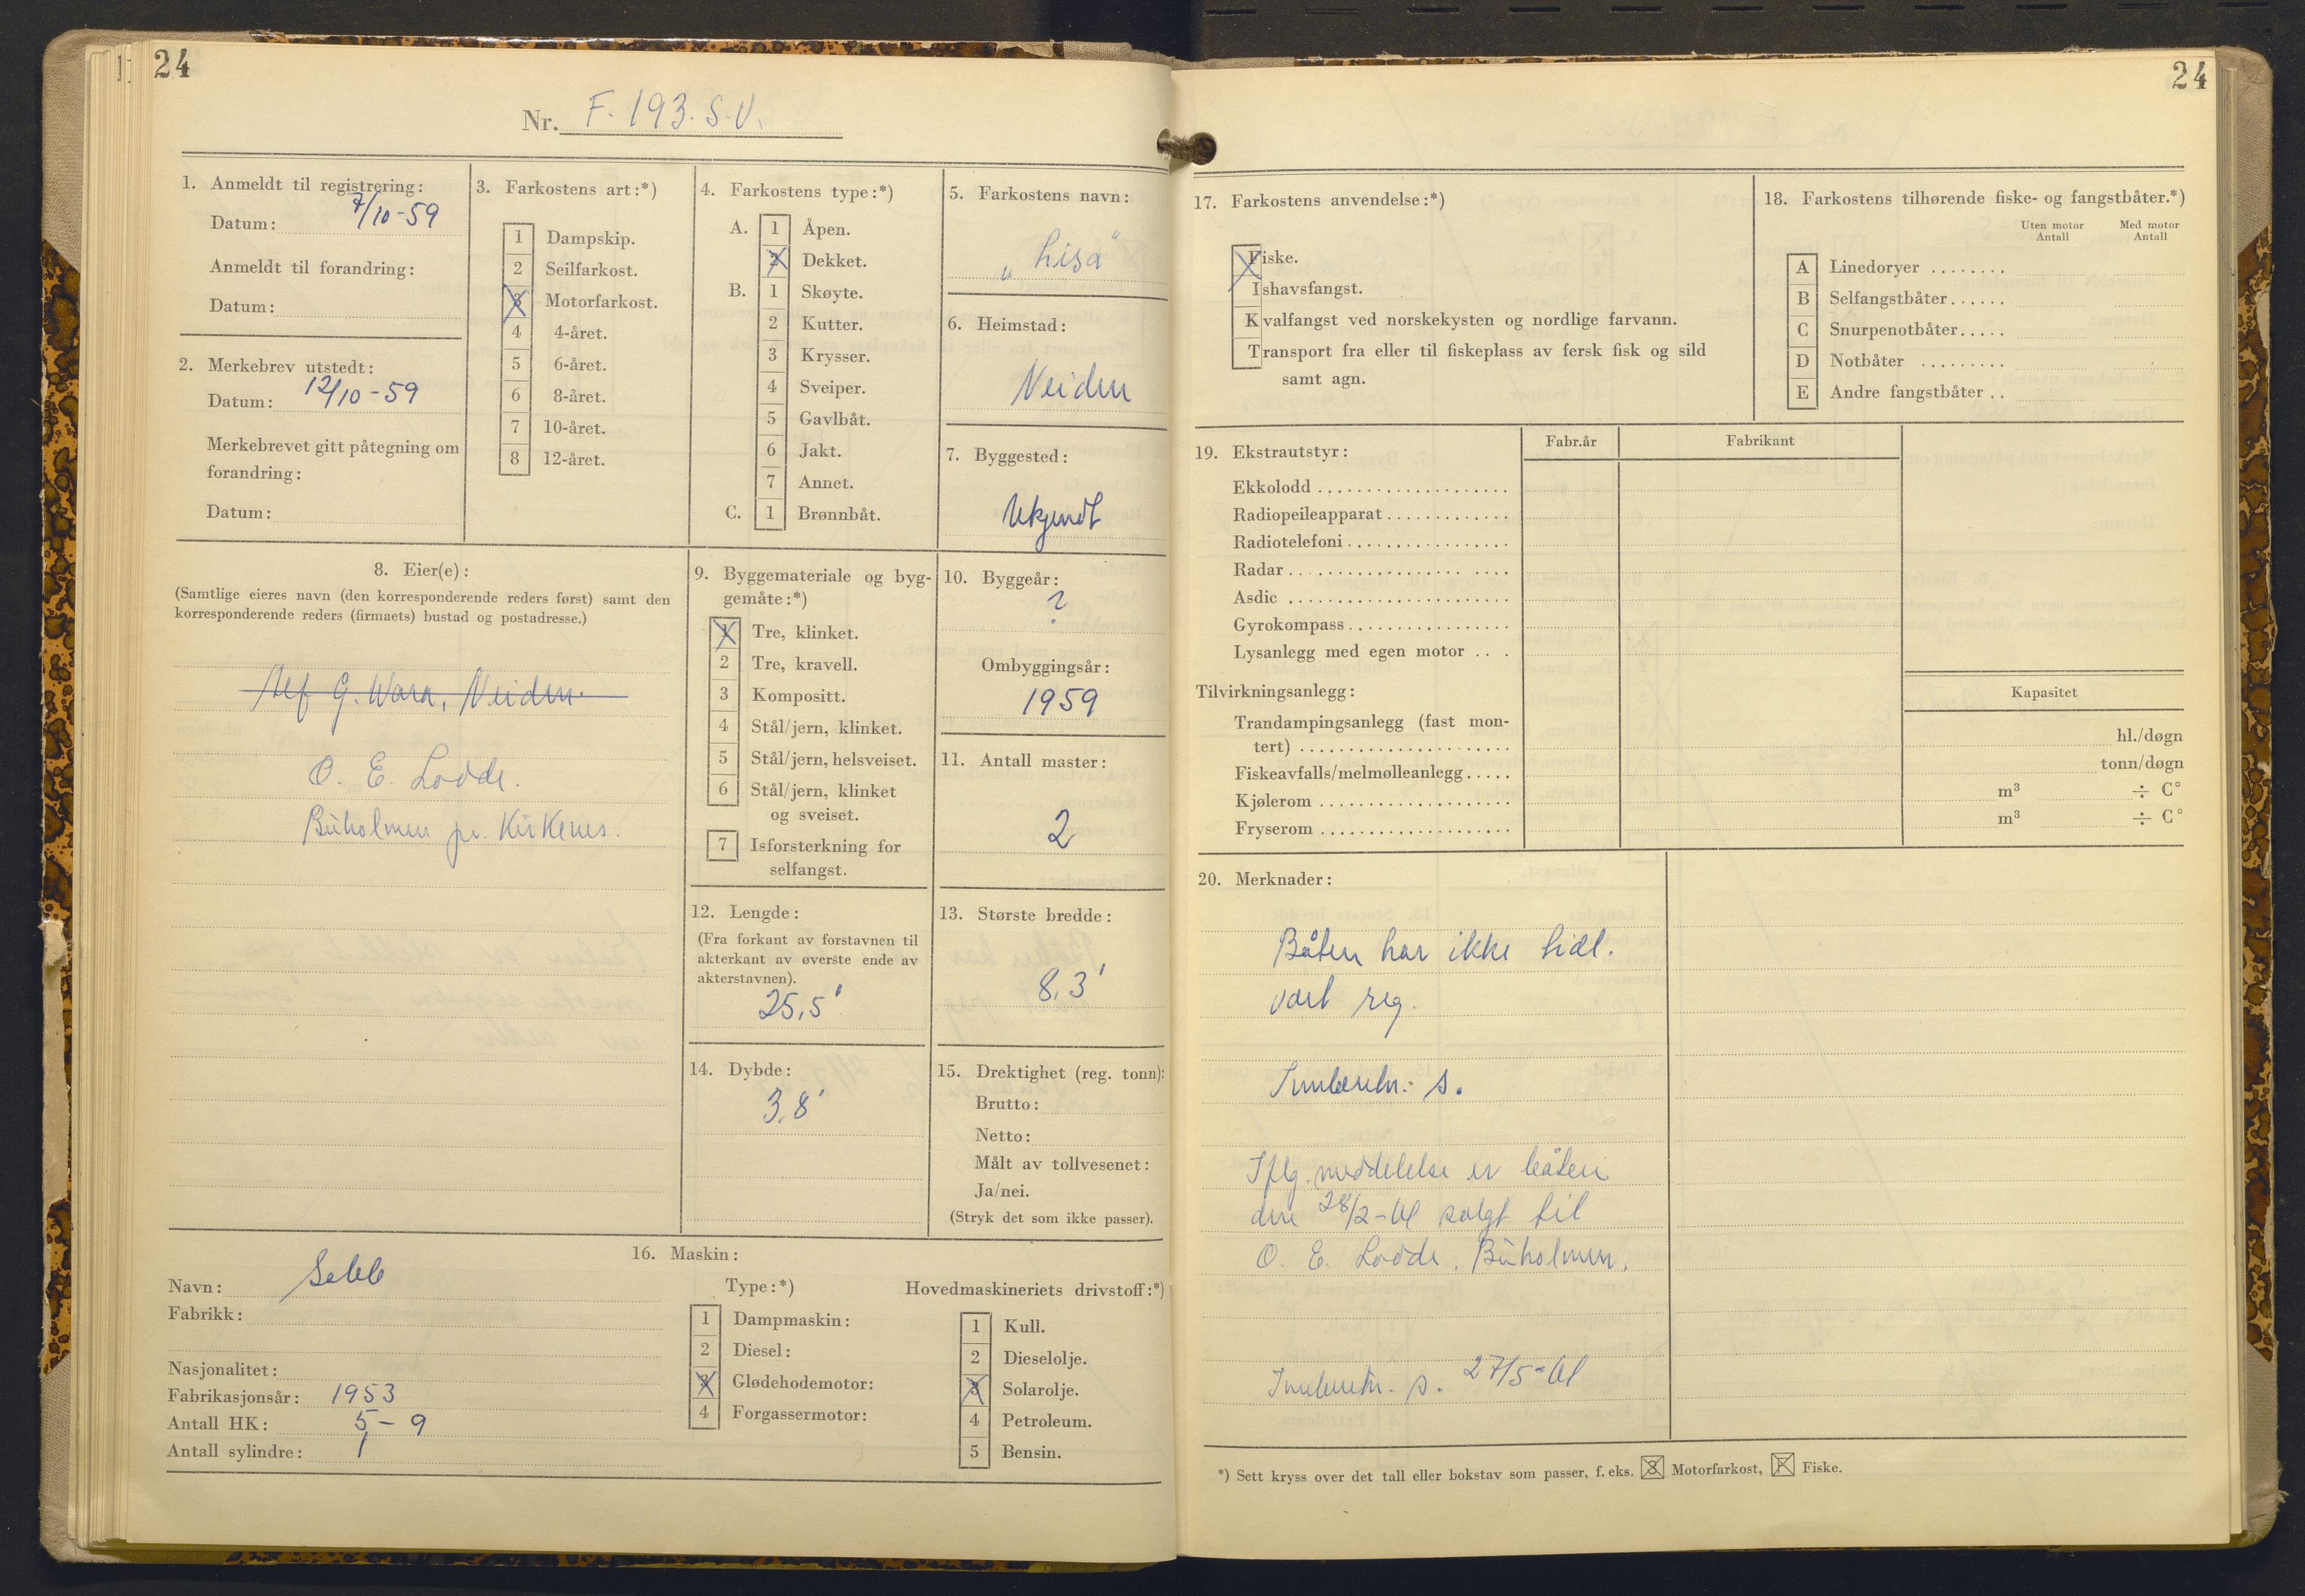 24
Nr. F. 193. S.V.
1. Anmeldt til registrering:
Datum: 7/10-59
Anmeldt til forandring:
Datum:
2. Merkebrev utstedt:
Datum: 12/10-59
Merkebrevet gitt påtegning om
forandring:
Datum:
3. Farkostens art:*)
1 Dampskip.
2 Seilfarkost.
3 Motorfarkost.
4 4-året.
5 6-året.
6 8-året.
7 10-året.
8 12-året.
4. Farkostens type:*)
A. 1 Åpen.
2 Dekket.
B. 1 Skøyte.
2 Kutter.
3 Krysser.
4 Sveiper.
5 Gavlbåt.
6 Jakt.
7 Annet.
C. 1 Brønnbåt.
5. Farkostens navn:
„Lisa"
6. Heimstad:
Neiden
7. Byggested:
Ukjendt
8. Eier(e):
(Samtlige eieres navn (den korresponderende reders først) samt den
korresponderende reders (firmaets) bustad og postadresse.)
G. Wara, Neiden.
O. E. Lodde.
Buholmen pr. Kirkenes.
9. Byggemateriale og byg-
gemåte:*)
1 Tre, klinket.
2 Tre, kravell.
3 Kompositt.
4 Stål/jern, klinket.
5 Stål/jern, helsveiset.
6 Stål/jern, klinket
og sveiset.
7 Isforsterkning for
selfangst.
10. Byggeår:
?
Ombyggingsår:
1959
11. Antall master:
2
12. Lengde:
(Fra forkant av forstavnen til
akterkant av øverste ende av
akterstavnen).
25,5'
13. Største bredde:
8,3'
14. Dybde:
3,8'
15. Drektighet (reg. tonn):
Brutto:
Netto:
Målt av tollvesenet:
Ja/nei.
(Stryk det som ikke passer).
16. Maskin:
Navn: Sabb
Fabrikk:
Nasjonalitet:
Fabrikasjonsår: 1953
Antall HK: 5-9
Antall sylindre: 1
Type:*)
1 Dampmaskin:
2 Diesel:
3 Glødehodemotor:
4 Forgassermotor:
Hovedmaskineriets drivstoff:*)
1 Kull.
2 Dieselolje.
3 Solarolje.
4 Petroleum.
5 Bensin.
24
17. Farkostens anvendelse:*)
Fiske.
Ishavsfangst.
Kvalfangst ved norskekysten og nordlige farvann.
Transport fra eller til fiskeplass av fersk fisk og sild
samt agn.
18. Farkostens tilhørende fiske- og fangstbåter.*)
Uten motor Med motor
Antall Antall
A Linedoryer ........
B Selfangstbåter......
C Snurpenotbåter.....
D Notbåter .........
E Andre fangstbåter ..
19. Ekstrautstyr:
Fabr.år Fabrikant
Ekkolodd ....................
Radiopeileapparat .............
Radiotelefoni .................
Radar ...................
Asdic .......................
Gyrokompass .................
Lysanlegg med egen motor ...
Tilvirkningsanlegg:
Kapasitet
Trandampingsanlegg (fast mon-
tert) ...................... hl./døgn
Fiskeavfalls/melmølleanlegg ..... tonn/døgn
Kjølerom .................... m³ ÷ C°
Fryserom .................... m³ ÷ C°
20. Merknader:
Båten har ikke tidl.
vært reg.
Innberetn. s.
Iflg. meddelelse er båten
den 28/2-61 solgt til
O. E. Lodde, Buholmen.
Innberetn. s. 27/5-61
*) Sett kryss over det tall eller bokstav som passer, f. eks. 3 Motorfarkost, F Fiske.